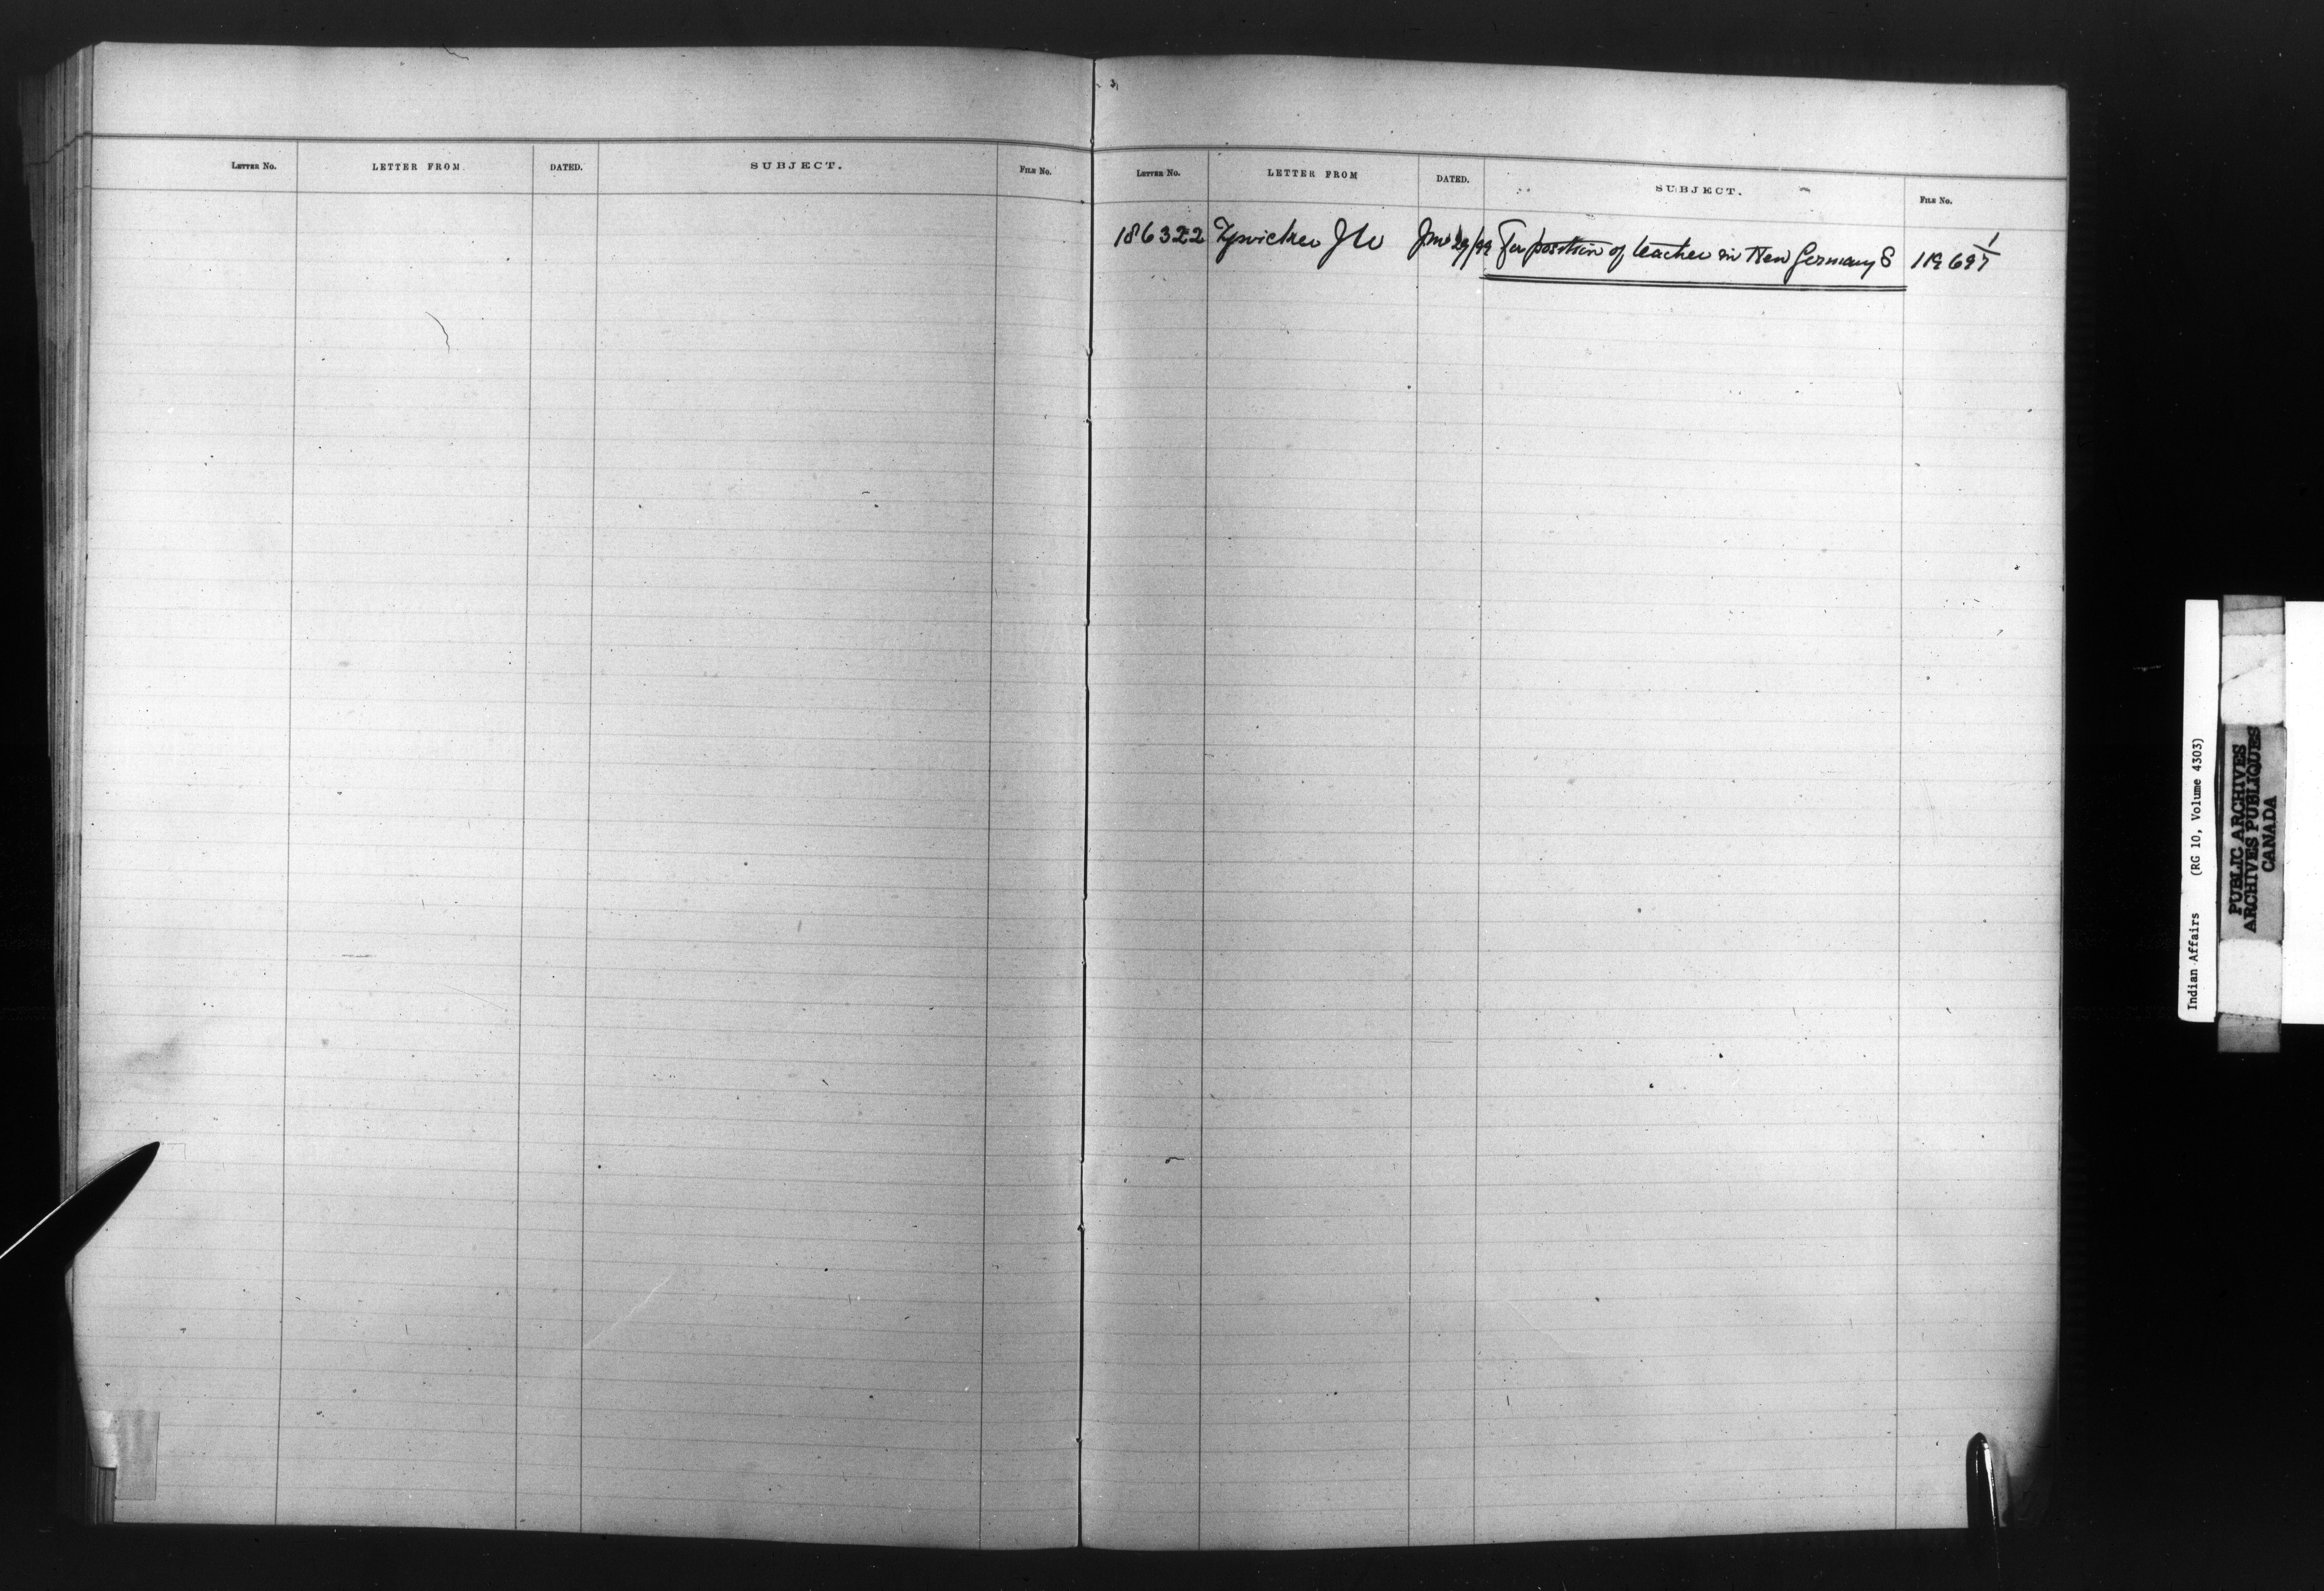 LETTER No. LETTER FROM. DATED. SUBJECT. FILE No.
LETTER No. LETTER FROM DATED. SUBJECT. FILE No.
186322 Zwicker J W June 29/99 For position of teacher in New Germany S 119697 1/
Indian Affairs (RG 10, Volume 4303)
PUBLIC ARCHIVES
ARCHIVES PUBLIQUES
CANADA